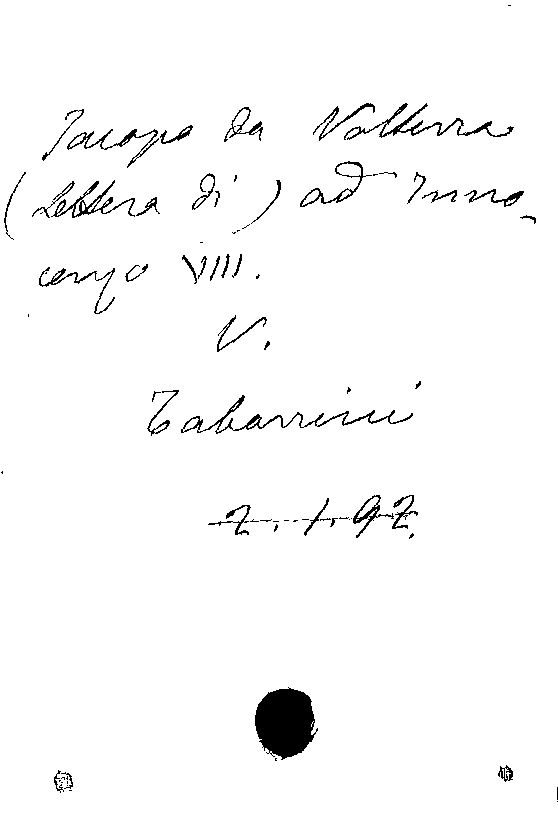 Jacopo da Volterra
(Lettera di) ad Inno-
cenzo VIII.
V.
Tabarrini
2.1.92.